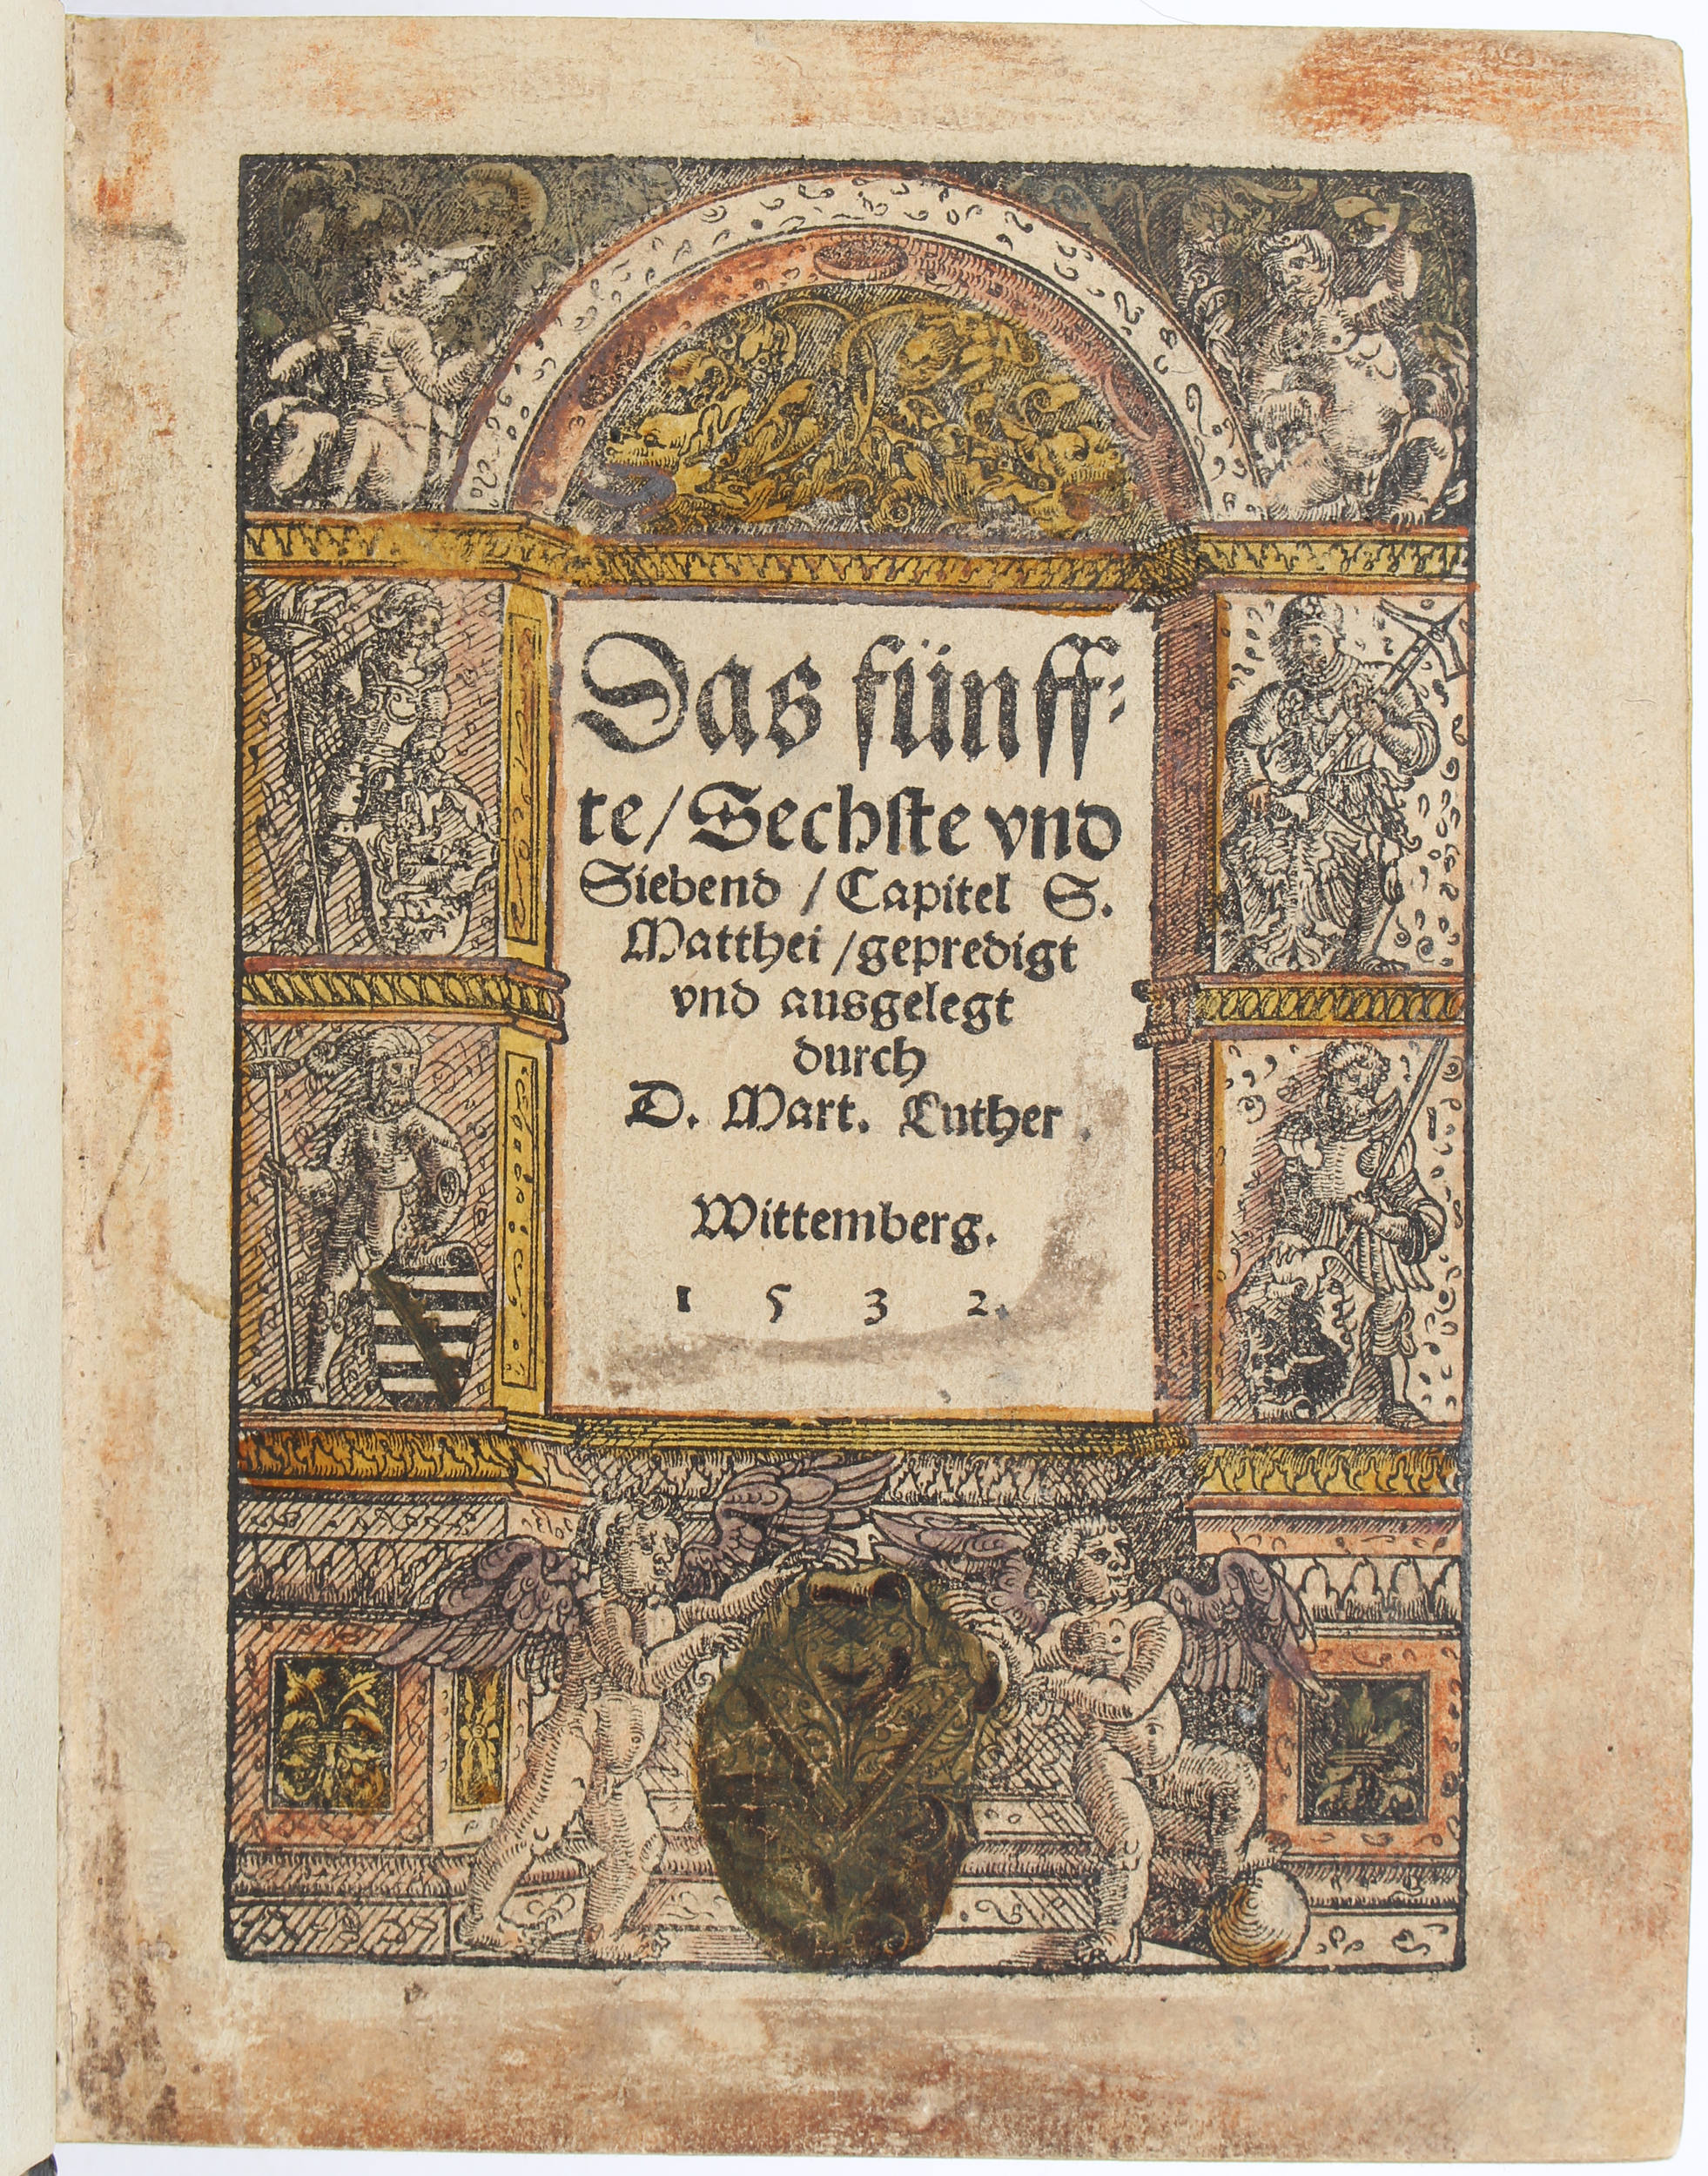 Das fünff⸗
te/ Sechste vnd
Siebend / Capitel S.
Matthei /gepredigt
vnd ausgelegt
durch
D. Mart. Luther.
Wittemberg.
1 5 3 2.